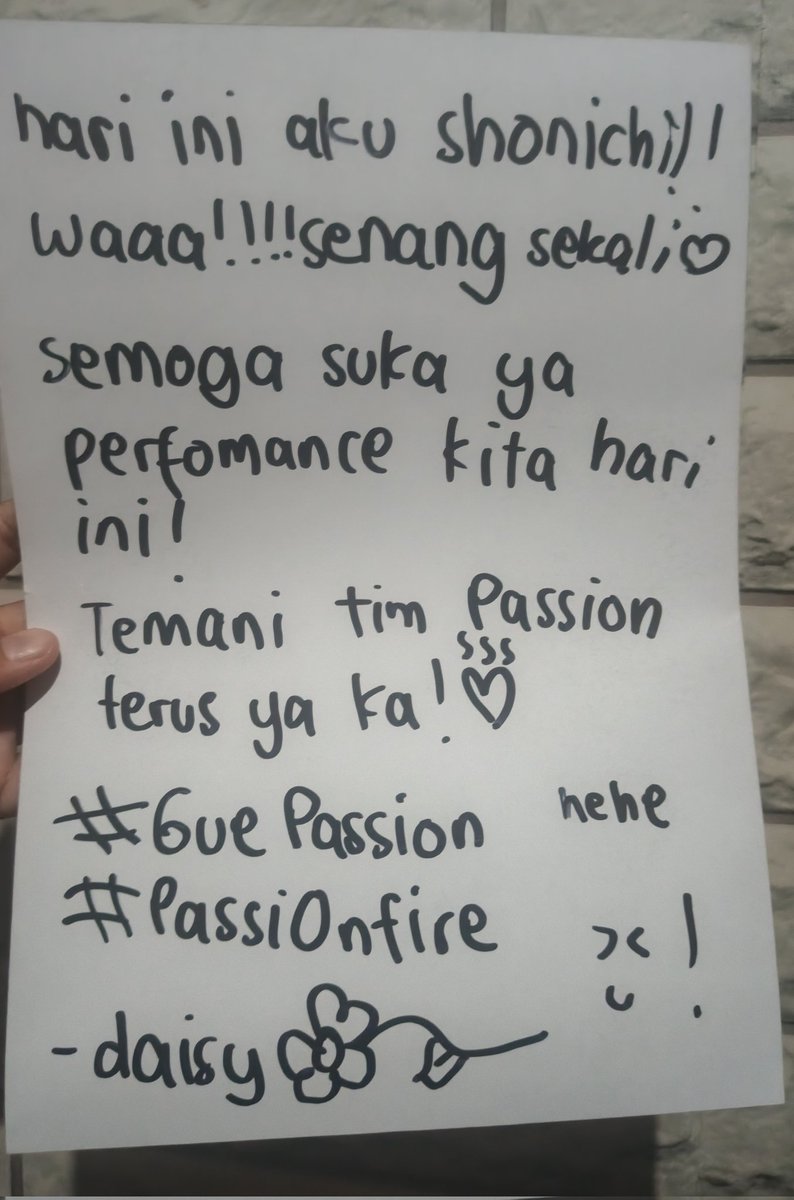 hari ini aku shonichi!!!
waaa!!!!senang sekali♡
semoga suka ya
perfomance kita hari
ini!
Temani tim Passion
terus ya ka!♡
#Gue Passion hehe
#PassiOnfire
-daisy